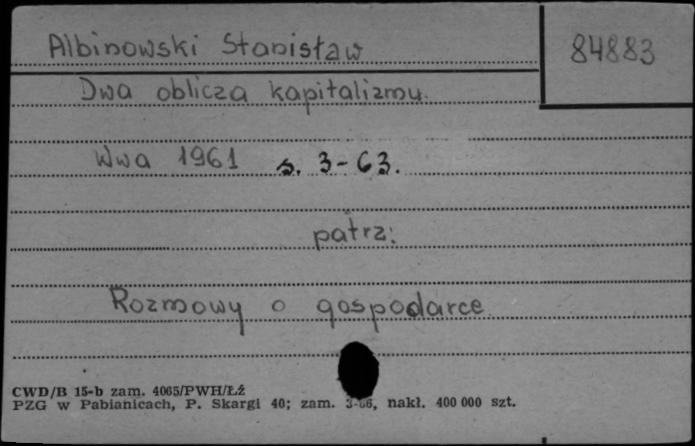 Albinowski Stanisław
84883
Dwa oblicza kapitalizmu.
Wwa 1961 s. 3-63.
patrz:
Rozmowy o gospodarce
CWD/B 15-b zam. 4065/PWH/Łź
PZG w Pabianicach, P. Skargi 40; zam. nakł. 400 000 szt.